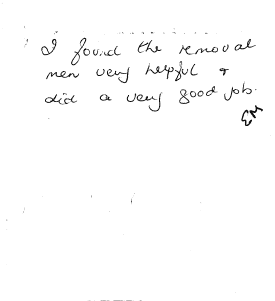 I found the removal
men very helpful &
did a very good job.
EM